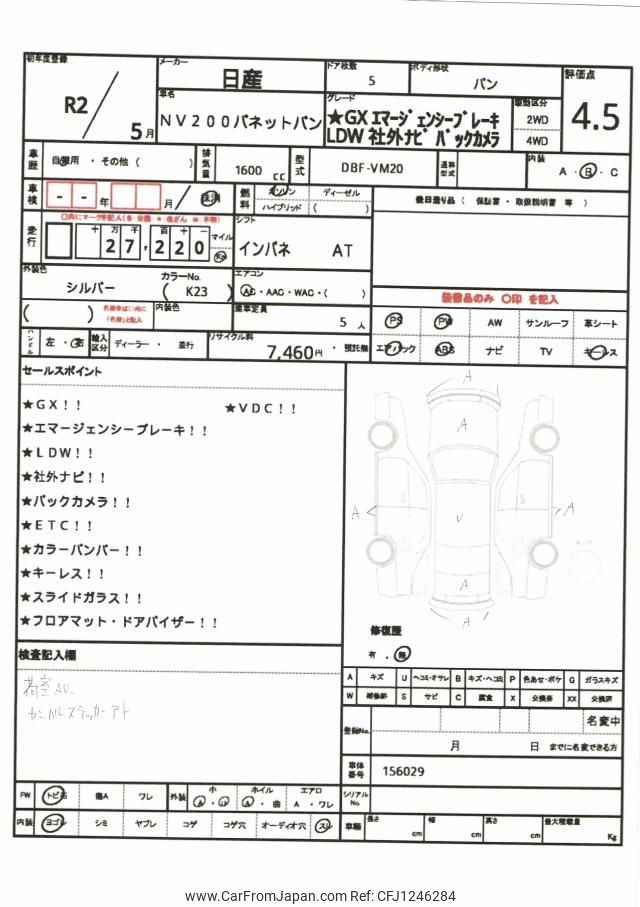 初年度登録
R2
5月
メーカー
日産
ドア枚数
5
ボディ形状
バン
評価点
4.5
車名
NV200バネットバン
グレード
★GX エマージェンシーブレーキ
LDW 社外ナビ バックカメラ
駆動区分
2WD
4WD
車歴
自家用・その他( )
排気量
1600 cc
型式
DBF-VM20
通称型式
内装
A・B・C
車検
- - 年 月
燃料
ガソリン
ディーゼル
ハイブリッド
( )
後日送り品( 保証書・取扱説明書 等 )
走行
十 万 千 百 十 一
27,220
マイル
Km
シフト
インパネ AT
外装色
シルバー
カラーNo.
( K23 )
エアコン
AC・AAC・WAC・( )
装備品のみ 〇印 を記入
( )
内装色
乗車定員
5 人
PS
PW
AW
サンルーフ
革シート
ハンドル
左・右
輸入区分
ディーラー・並行
リサイクル料
7,460円・預託無
エアバック
ABS
ナビ
TV
キーレス
セールスポイント
★GX!!
★VDC!!
★エマージェンシーブレーキ!!
★LDW!!
★社外ナビ!!
★バックカメラ!!
★ETC!!
★カラーバンパー!!
★キーレス!!
★スライドガラス!!
★フロアマット・ドアバイザー!!
A
A
A
A
U
A
A
修復歴
有・無
検査記入欄
荷室AU、
A キズ U ヘコミ・オサレ B キズ・ヘコミ P 色あせ・ボケ G ガラスキズ
W 補修跡 S サビ C 腐食 X 交換要 XX 交換済
登録No.
名変中
月 日 までに名変できる方
車体番号
156029
シリアルNo
FW
トビ石
傷A
ワレ
外装
小
A・U
ホイル
A・曲
エアロ
A・ワレ
内装
ヨゴレ
シミ
ヤブレ
コゲ
コゲ穴
オーディオ穴
スレ
車輌
長さ cm
幅 cm
高さ cm
最大積載量 Kg
www.CarFromJapan.com Ref: CFJ1246284